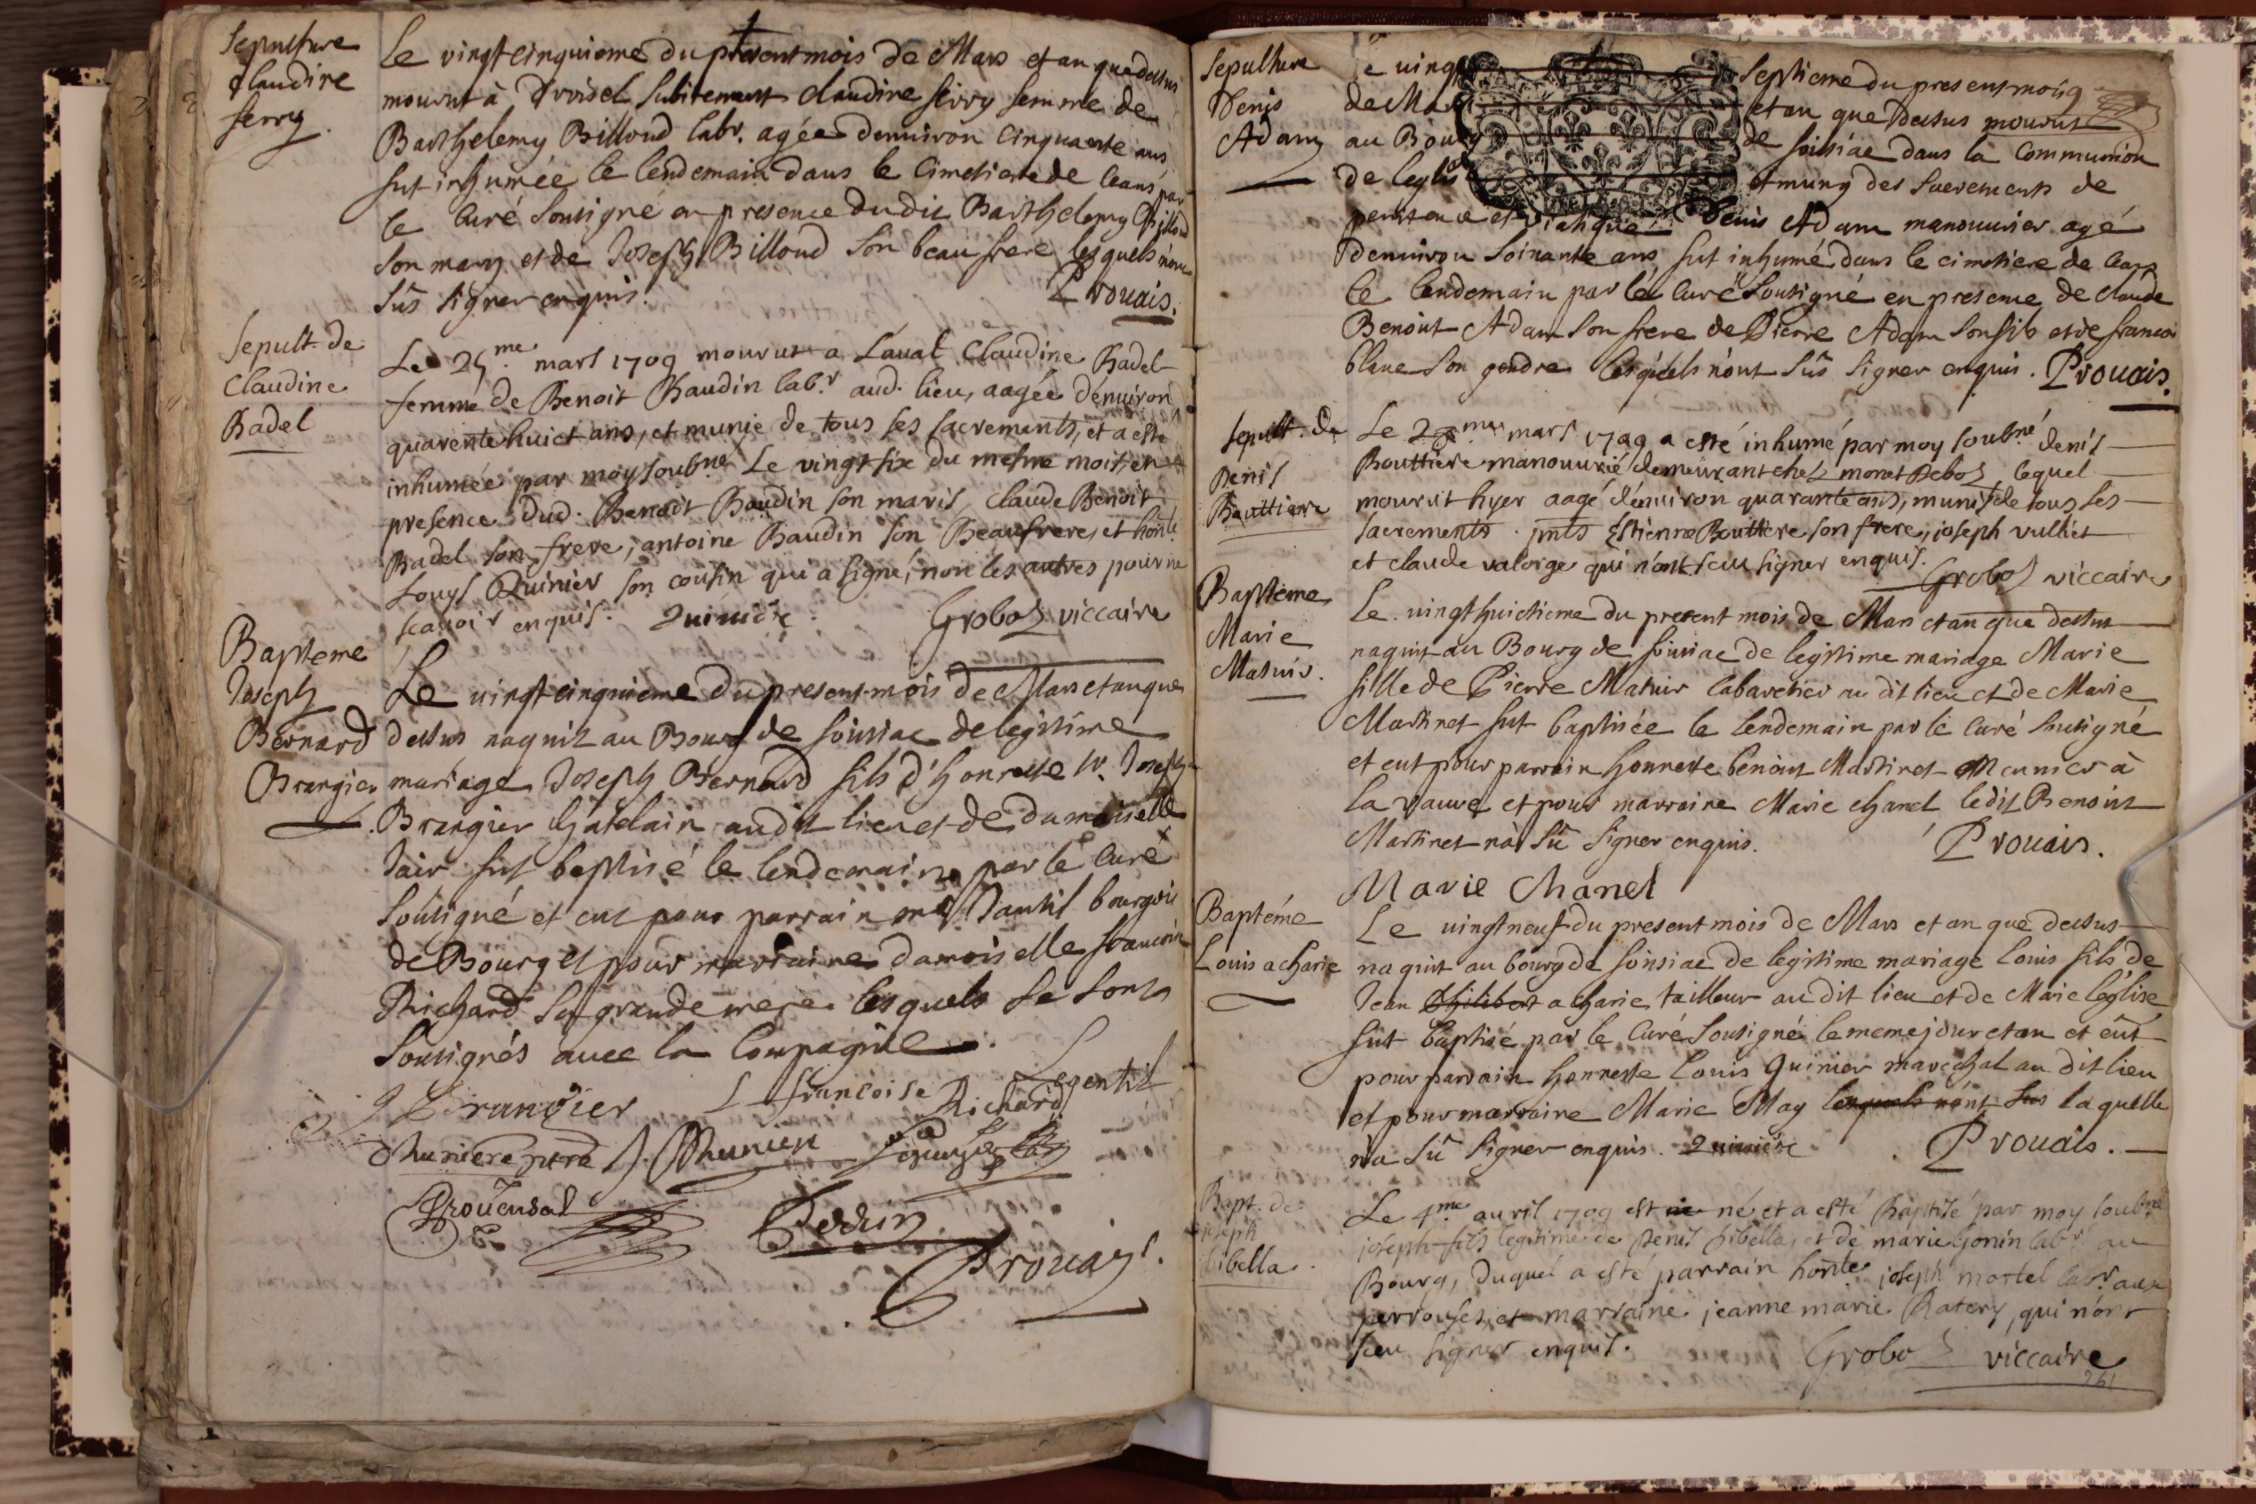 Sepulture
Claudine
ferry.
Le vingtcinquieme du present mois de Mars et an que dessus
mourut à Croisel subitement claudine ferry femme de
Barthelemy Billoud labr. agée denviron cinquante ans
fut inhumée le lendemain dans le Cimetiere de ceans par
le Curé Sousigné en presence dudit Barthelemy Billoud
son mary et de Joseph Billoud son beaufrere lesquels n'ont
sûs signer enquis. Prouais.
Sepult. de
Claudine
Badel
Le 25.me mars 1709 mourut a Laual Claudine Badel
femme de Benoit Baudin labr. aud. lieu, aagée d'enuiron
quarente huict ans, et munie de tous ses sacrements, et a esté
inhumée par moy soubné Le vingt six du mesme mois, en
presence dud. Benoit Baudin son maris, Claude Benoit
Badel son frere, antoine Baudin son Beaufrere, et honle
Louys Quinier son cousin qui a signé, non les autres pour ne
scauoir enquis. Quiniere. Grobos viccaire
Bapteme
Joseph
Bernard
Brangier
Le vingtcinquieme du present mois de Mars et an que
dessus naquit au Bourg de soissiac de legitime
mariage Joseph Bernard fils d'honneste Sr. Joseph
Brangier Chatelain audit lieu et de damoiselle
Jair fut baptisé le lendemain par le Curé
sousigné et eut pour parrain Jantil bourgois
de Bourg et pour marraine damoiselle francoise
Richard sa grande mere lesquels se sont
sousignés auec la Compagnie.
Brangier francoise Richard Legentil
Prouensal Perrin
Prouays.
Sepulture
Denis
Adam
Le vingt septieme du present mois
de Mars et an que dessus mourut
au Bourg de soissiac dans la Communion
de leglise et muny des sacrements de
penitence et viatique Denis Adam manouurier agé
denuiron soixante ans fut inhumé dans le cimetiere de ceans
le lendemain par le Curé sousigné en presence de claude
Benoint Adam son frere de Pierre Adam son fils et de francois
blanc son gendre lesquels n'ont sûs signer enquis. Prouais.
Sepult. de
Denis
Bouttiere
Le 28me mars 1709 a esté inhumé par moy soubné denis
Bouttiere manouurié demeurant chez monet Debos lequel
mourut hyer aagé d'enuiron quarante ans, munis de tous ses
sacrements. pnts Estienne Bouttiere son frere, joseph vulliet
et claude valorge qui n'ont sceu signer enquis.
Grobos viccaire
Bapteme
Marie
Mathuis.
Le vingthuictieme du present mois de Mars et an que dessus
naquit au Bourg de soissiac de legitime mariage Marie
fille de Pierre Mathuis Cabaretier au dit lieu et de Marie
Martinet fut baptisée le lendemain par le Curé sousigné
et eut pour parrain honneste benoint Martinet Meunier à
la vauure et pour marraine Marie chanel ledit Benoint
Martinet n'a sû signer enquis. Prouais.
Marie Chanel
Baptéme
Louis acharie
Le vingtneuf du present mois de Mars et an que dessus
naquit au bourg de soissiac de legitime mariage Louis fils de
Jean Philibert acharie tailleur au dit lieu et de Marie l'eglise
fut baptisé par le Curé Sousigné le meme jour et an et eût
pour parrain honneste Louis Quinier marechal au dit lieu
et pour marraine Marie May lesquels n'ont sus laquelle
n'a sû signer enquis. Quiniere Prouais.
Bapt. de
joseph
sibella.
Le 4.me auril 1709 est né et a esté Baptisé par moy soubné
joseph fils legitime de Denis sibella, et de marie Gonin labr. au
Bourg, duquel a esté parrain honle. joseph martel labr. aux
perrouses, et marraine jeanne marie Ratery, qui n'ont
sceu signer enquis. Grobos viccaire
261